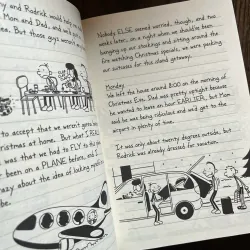 y and Rodrick would help
Mom and Dad... and we'd
time. But those guys weren't
to accept that we weren't gonna
christmas at home. But what I
was that we had to FLY to
er been on a PLANE before, and I
azy about the idea of being
Nobody ELSE seemed worried, though, and two
weeks later, on a night when we should've been
hanging up our stockings and sitting around the
fire watching Christmas specials, we were packing
our suitcases for this island getaway.
Monday
We left the house around 8:00 on the morning of
Christmas Eve. Dad was pretty uptight because
he wanted to leave an hour EARLIER, but Mom
said he was being ridiculous and we'd get to the
airport in plenty of time.
It was only about twenty degrees outside, but
Rodrick was already dressed for vacation.